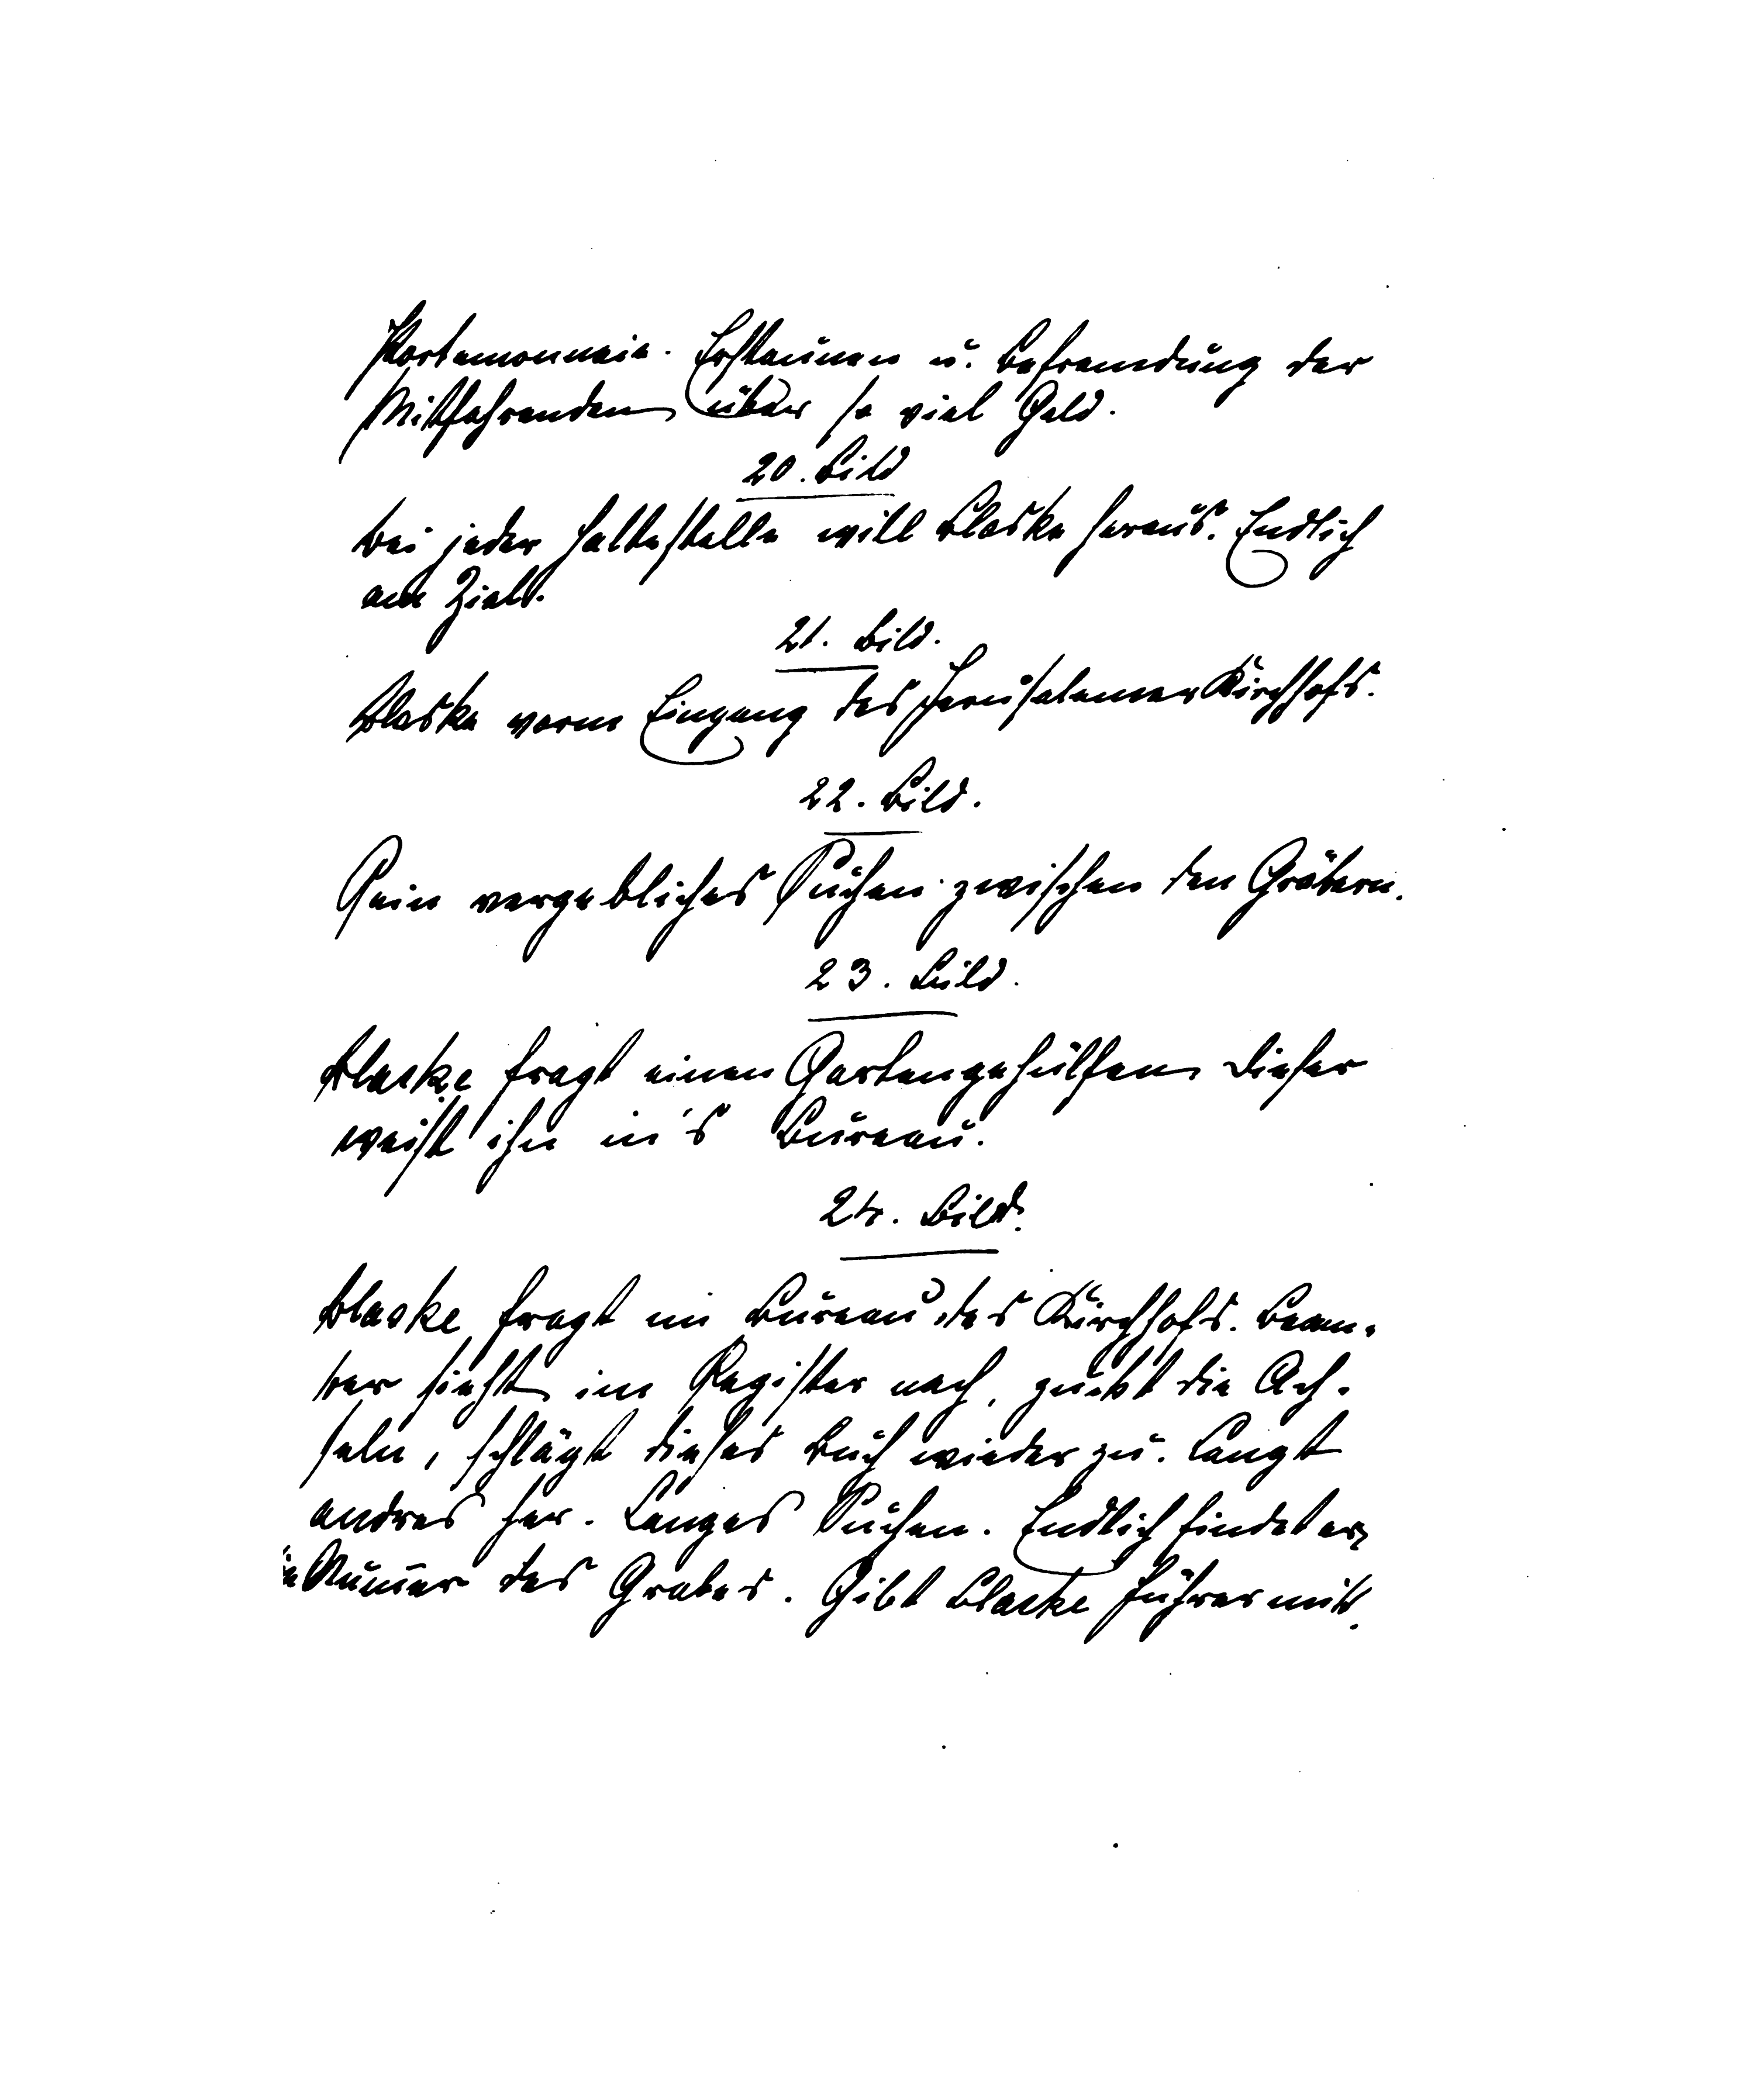 Portemonnaie. Erstaunen u. Befremdung der
Mitfahrenden über so viel Geld.
20. Bild
Bei jeder Haltestelle will Blaske heraus. Endlich
am Ziel.
21. Bild.
Blaske vorm Eingang des Jerusalemer Kirchhofs.
22. Bild.
Sein vergebliches Suchen zwischen den Gräbern.
23. Bild.
Blaske fragt einen Gartengehülfen Dieser
weist ihn in's Bureau.
24. Bild.
Blaske fragt im Bureau des Kirchhofs. Beam-
ter sieht im Register nach, zuckt die Ach-
seln, schlägt dieses Buch wieder zu. Langt
andres her. Langes Suchen. Endlich findet er
Num̅er des Grabes. Gibt Blaske Führer mit.